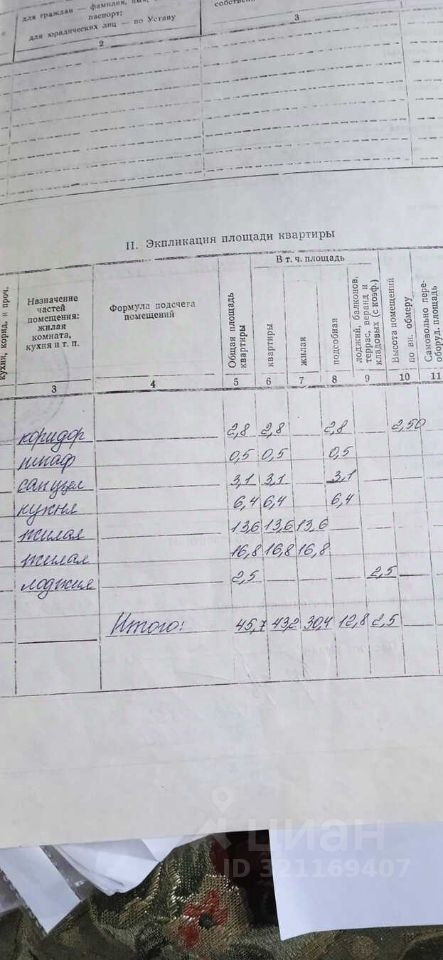 для граждан — фамилия, имя,
паспорт;
для юридических лиц — по Уставу
2
3
II. Экспликация площади квартиры
кухни, корид. и проч.
Назначение
частей
помещения:
жилая
комната,
кухня и т. п.
Формула подсчета
помещений
Общая площадь
квартиры
В т. ч. площадь
квартиры
жилая
подсобная
лоджий, балконов,
террас, веранд и
кладовых (с коэф.)
Высота помещений
по вн. обмеру
Самовольно пере-
оборуд. площадь
3 4 5 6 7 8 9 10 11
коридор 2,8 2,8 2,8 2,50
шкаф 0,5 0,5 0,5
санузел 3,1 3,1 3,1
кухня 6,4 6,4 6,4
жилая 13,6 13,6 13,6
жилая 16,8 16,8 16,8
лоджия 2,5 2,5
Итого: 45,7 43,2 30,4 12,8 2,5
циан
ID 321169407